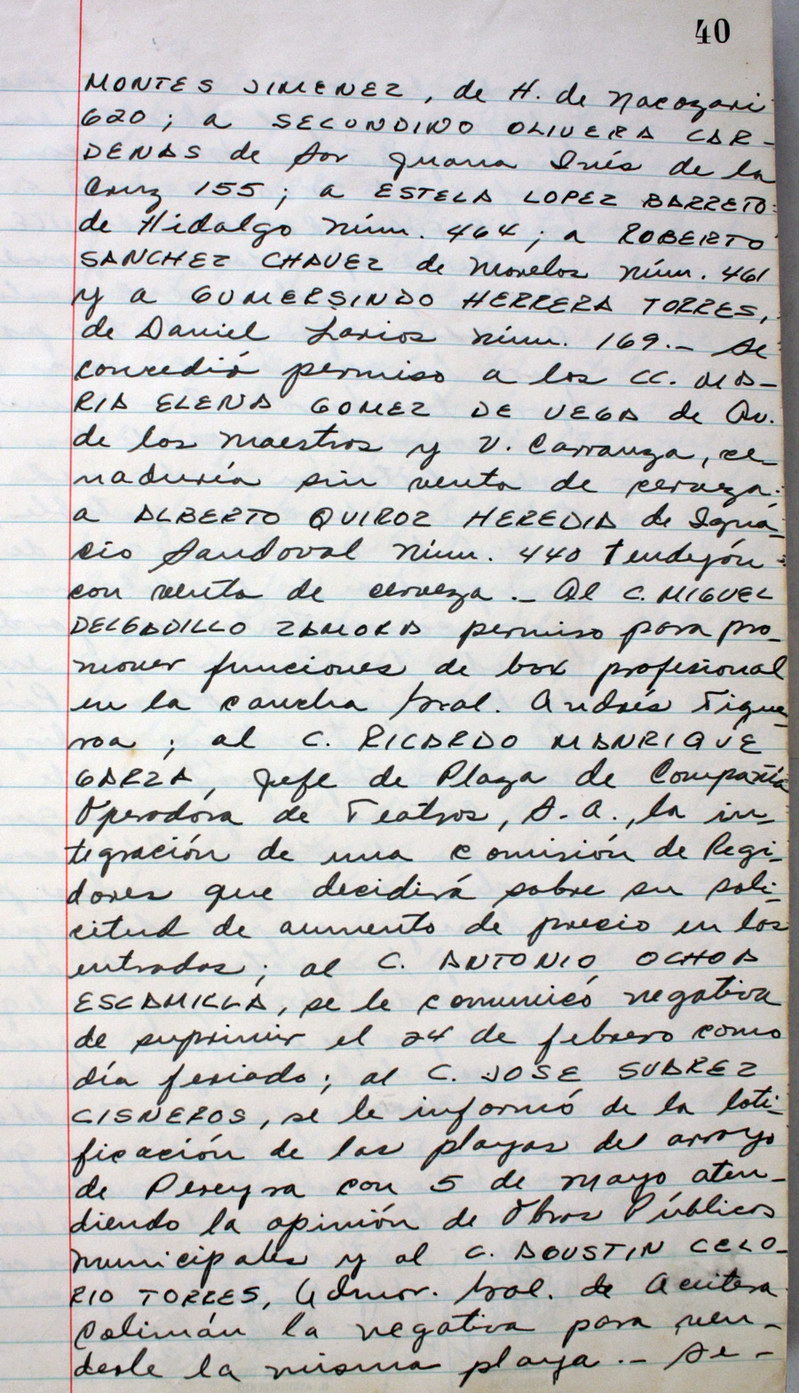 40
MONTES JIMENEZ, de H. de Nacozari
620; a SECUNDINO OLIVERA CAR-
DENAS de Sor Juana Inés de la
Cruz 155; a ESTELA LOPEZ BARRETO
de Hidalgo núm. 464; a ROBERTO
SANCHEZ CHAVEZ de Morelos núm. 461
y a GUMERSINDO HERRERA TORRES,
de Daniel Larios núm. 169.- Se
concedió permiso a los CC. MA-
RIA ELENA GOMEZ DE VEGA de Av.
de los Maestros y V. Carranza, ce-
naduría sin venta de cerveza.
a ALBERTO QUIROZ HEREDIA de Igna-
cio Sandoval núm. 440 tendejón
con venta de cerveza.- Al C. MIGUEL
DELGADILLO ZAMORA permiso para pro-
mover funciones de box profesional
en la cancha Gral. Andrés Figue-
roa; al C. RICARDO MANRIQUE
GARZA, Jefe de Plaza de Compañía
Operadora de Teatros, S.A., la in-
tegración de una comisión de Regi-
dores que decidirá sobre su soli-
citud de aumento de precio en los
entradas; al C. ANTONIO OCHOA
ESCAMILLA, se le comunicó negativa
de suprimir el 24 de febrero como
día feriado; al C. JOSE SUAREZ
CISNEROS, se le informó de la loti-
ficación de las playas del arroyo
de Pereyra con 5 de mayo aten-
diendo la opinión de Obras Públicas
Municipales y al C. AGUSTIN CELO-
RIO TORRES, Admor. Gral. de Aceitera
Colimán la negativa para ven-
derle la misma playa.- Se-